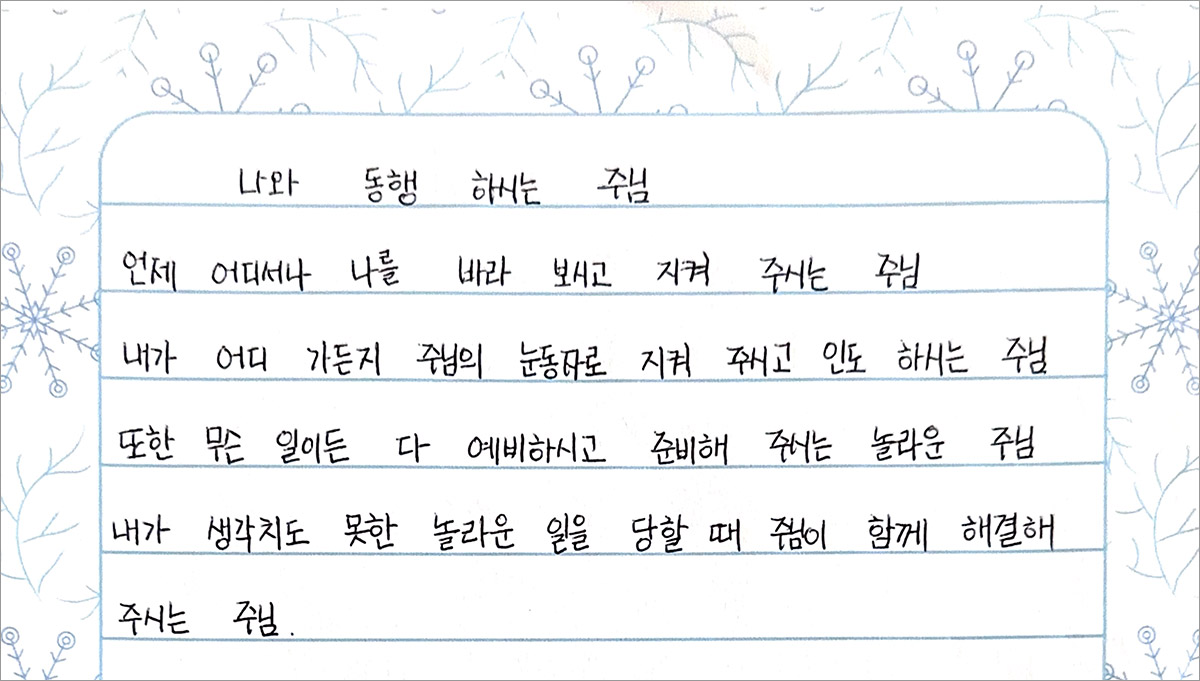 나와 동행 하시는 주님
언제 어디서나 나를 바라 보시고 지켜 주시는 주님
내가 어디 가든지 주님의 눈동자로 지켜 주시고 인도 하시는 주님
또한 무슨 일이든 다 예비하시고 준비해 주시는 놀라운 주님
내가 생각치도 못한 놀라운 일을 당할 때 주님이 함께 해결해
주시는 주님.